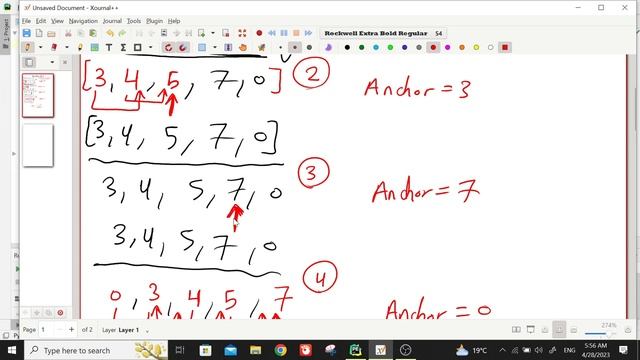 Unsaved Document - Xournal++
File Edit View Navigation Journal Tools Plugin Help
Rockwell Extra Bold Regular 54
[3, 4, 5, 7, 0] 2 Anchor = 3
[3, 4, 5, 7, 0]
3, 4, 5, 7, 0 3 Anchor = 7
3, 4, 5, 7, 0
4
0, 3, 4, 5, 7 Anchor = 0
Page 1 of 2 Layer Layer 1 274%
Type here to search 19°C ENG 5:56 AM
4/28/2023